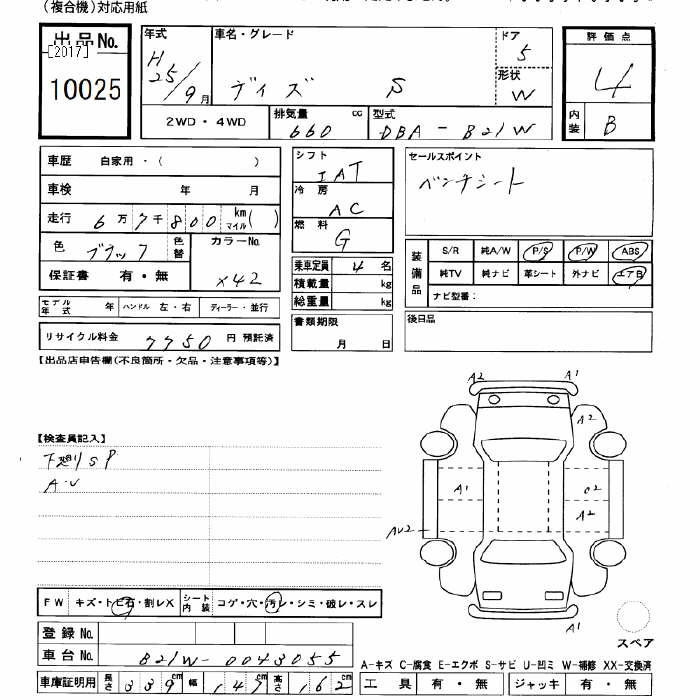 (複合機)対応用紙
出品No.
[2017]
10025
年式
H25/9月
車名・グレード
デイズ S
ドア
5
形状
W
評価点
4
内装
B
2WD・4WD
排気量 cc
660
型式
DBA-B21W
車歴 自家用・( )
車検 年 月
走行 6万7千800 km マイル( )
色 ブラック 色替
カラーNo.
X42
保証書 有・無
シフト
IAT
冷房
AC
燃料
G
乗車定員 4名
積載量 kg
総重量 kg
書類期限
月 日
セールスポイント
ベンチシート
装備品
S/R 純A/W P/S P/W ABS
純TV 純ナビ 革シート 外ナビ エアB
ナビ型番:
後日品
モデル年式 年 ハンドル 左・右 ディーラー・並行
リサイクル料金 7750円 預託済
【出品店申告欄(不良箇所・欠品・注意事項等)】
【検査員記入】
下廻りSP
A・U
A2 A1
A2
A1 U2
A2
AU2
A1
FW キズ・トビ石・割レX シート内装 コゲ・穴・汚レ・シミ・破レ・スレ
登録No.
車台No. B21W-0043055
車庫証明用 長さ 339cm 幅 147cm 高さ 162cm
スペア
A-キズ C-腐食 E-エクボ S-サビ U-凹ミ W-補修 XX-交換済
工具 有・無 ジャッキ 有・無